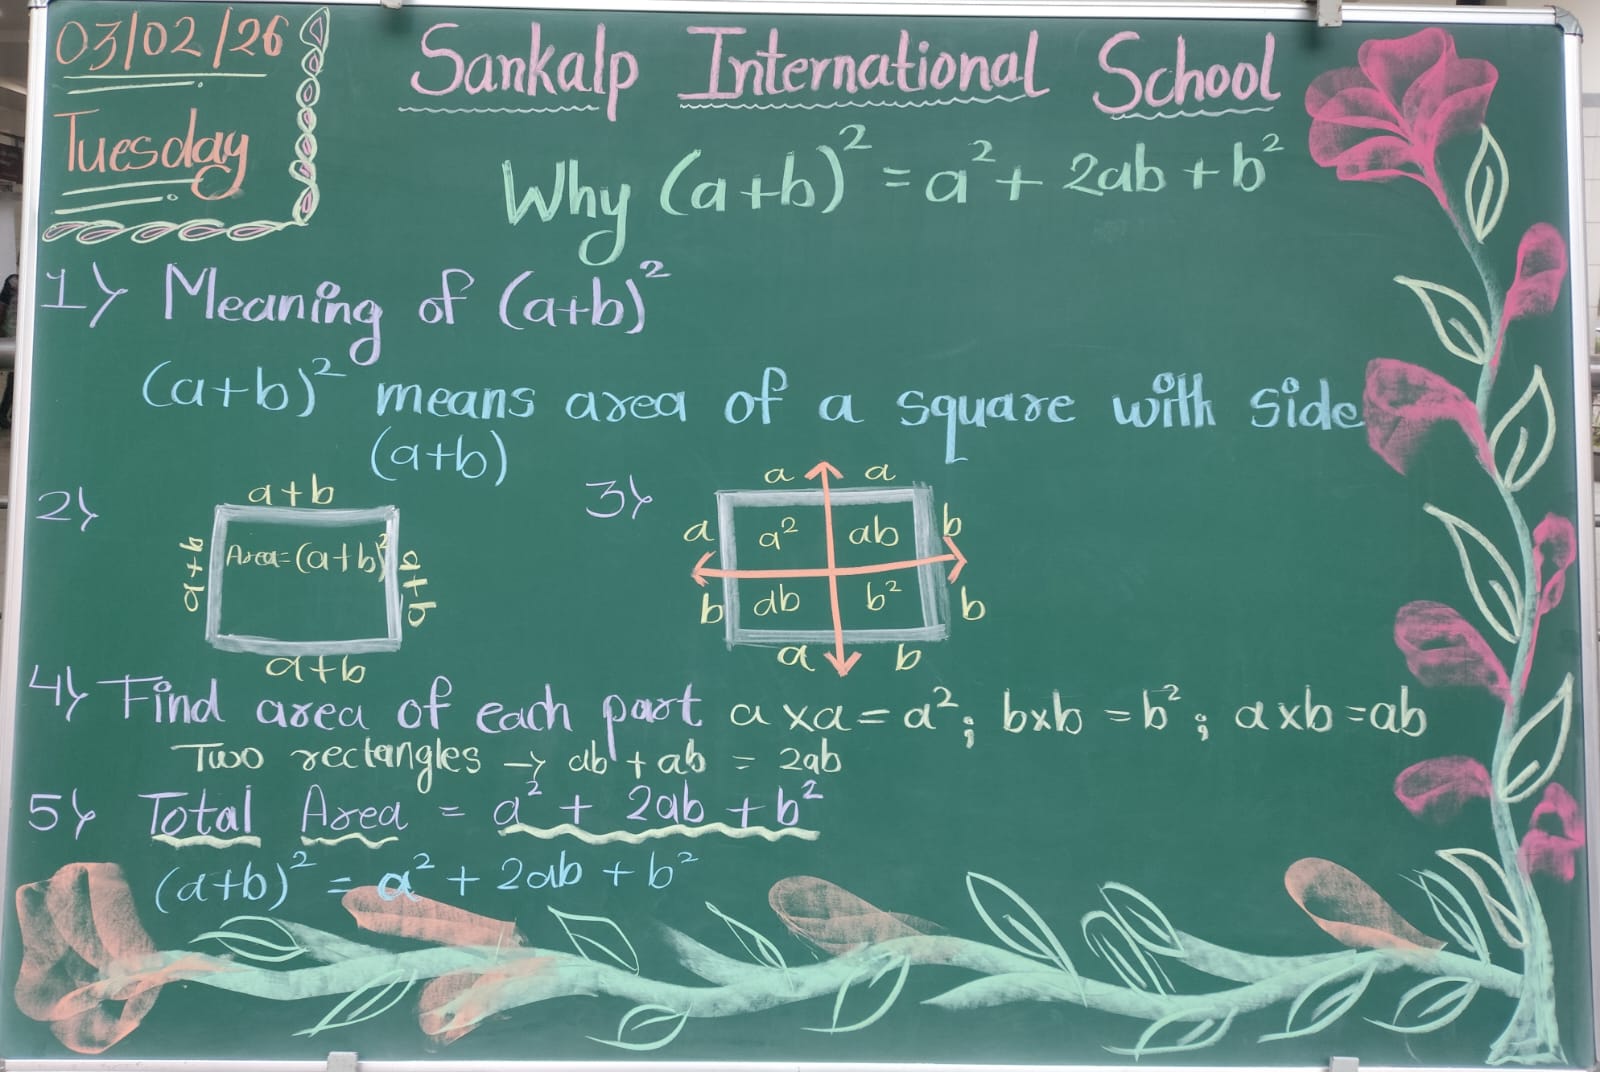 03/02/26
Tuesday
Sankalp International School
Why (a+b)² = a² + 2ab + b²
1) Meaning of (a+b)²
(a+b)² means area of a square with side
(a+b)
2)
a+b
a+b
Area=(a+b)²
a+b
a+b
3)
a a
a a² ab b
b ab b² b
a b
4) Find area of each part a×a = a²; b×b = b²; a×b = ab
Two rectangles → ab + ab = 2ab
5) Total Area = a² + 2ab + b²
(a+b)² = a² + 2ab + b²